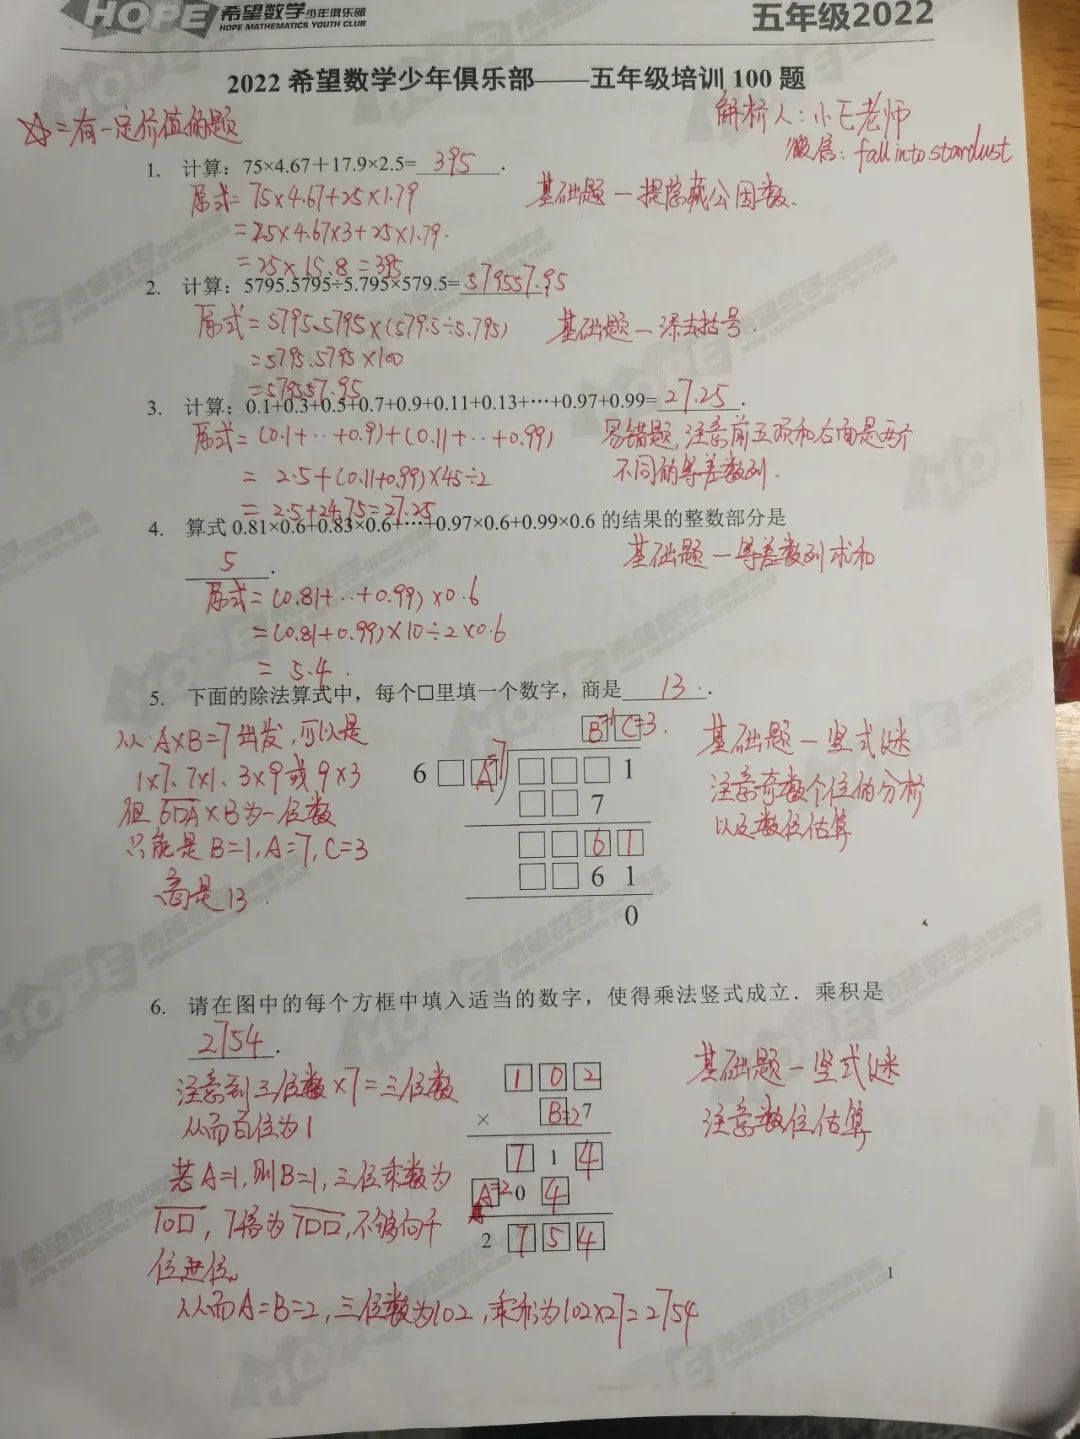 HOPE 希望数学少年俱乐部
HOPE MATHEMATICS YOUTH CLUB
五年级2022
2022 希望数学少年俱乐部——五年级培训 100 题
☆=有一定价值的题
解析人:小E老师
微信:fallintostardust
1. 计算:75×4.67+17.9×2.5=395.
原式=75×4.67+25×1.79
基础题—提隐藏公因数.
=25×4.67×3+25×1.79.
=25×15.8=395
2. 计算:5795.5795÷5.795×579.5=579557.95
原式=5795.5795×(579.5÷5.795)
基础题—添去括号.
=5795.5795×100
=579557.95
3. 计算:0.1+0.3+0.5+0.7+0.9+0.11+0.13+…+0.97+0.99=27.25.
原式=(0.1+..+0.9)+(0.11+..+0.99)
易错题,注意前五项和右面是两个
= 2.5+(0.11+0.99)×45÷2
不同的等差数列.
= 2.5+24.75=27.25
4. 算式 0.81×0.6+0.83×0.6+…+0.97×0.6+0.99×0.6 的结果的整数部分是
5.
基础题—等差数列求和
原式=(0.81+..+0.99)×0.6
=(0.81+0.99)×10÷2×0.6
= 5.4.
5. 下面的除法算式中,每个□里填一个数字,商是13.
从A×B=7出发,可以是
1×7、7×1、3×9或9×3
但6□A×B为一位数
只能是B=1,A=7,C=3
商是13.
B=1 C=3.
6□A=7 □□□1
□□7
□□61
□□61
0
基础题—竖式谜
注意奇数个位的分析
以及数位估算
6. 请在图中的每个方框中填入适当的数字,使得乘法竖式成立.乘积是
2754.
注意到三位数×7=三位数
从而百位为1
若A=1,则B=1,三位乘数为
10□,7倍为7□□,不够向千
位进位。
从而A=B=2,三位数为102,乘积为102×27=2754
102
× B=27
714
A=204
2754
基础题—竖式谜
注意数位估算
1